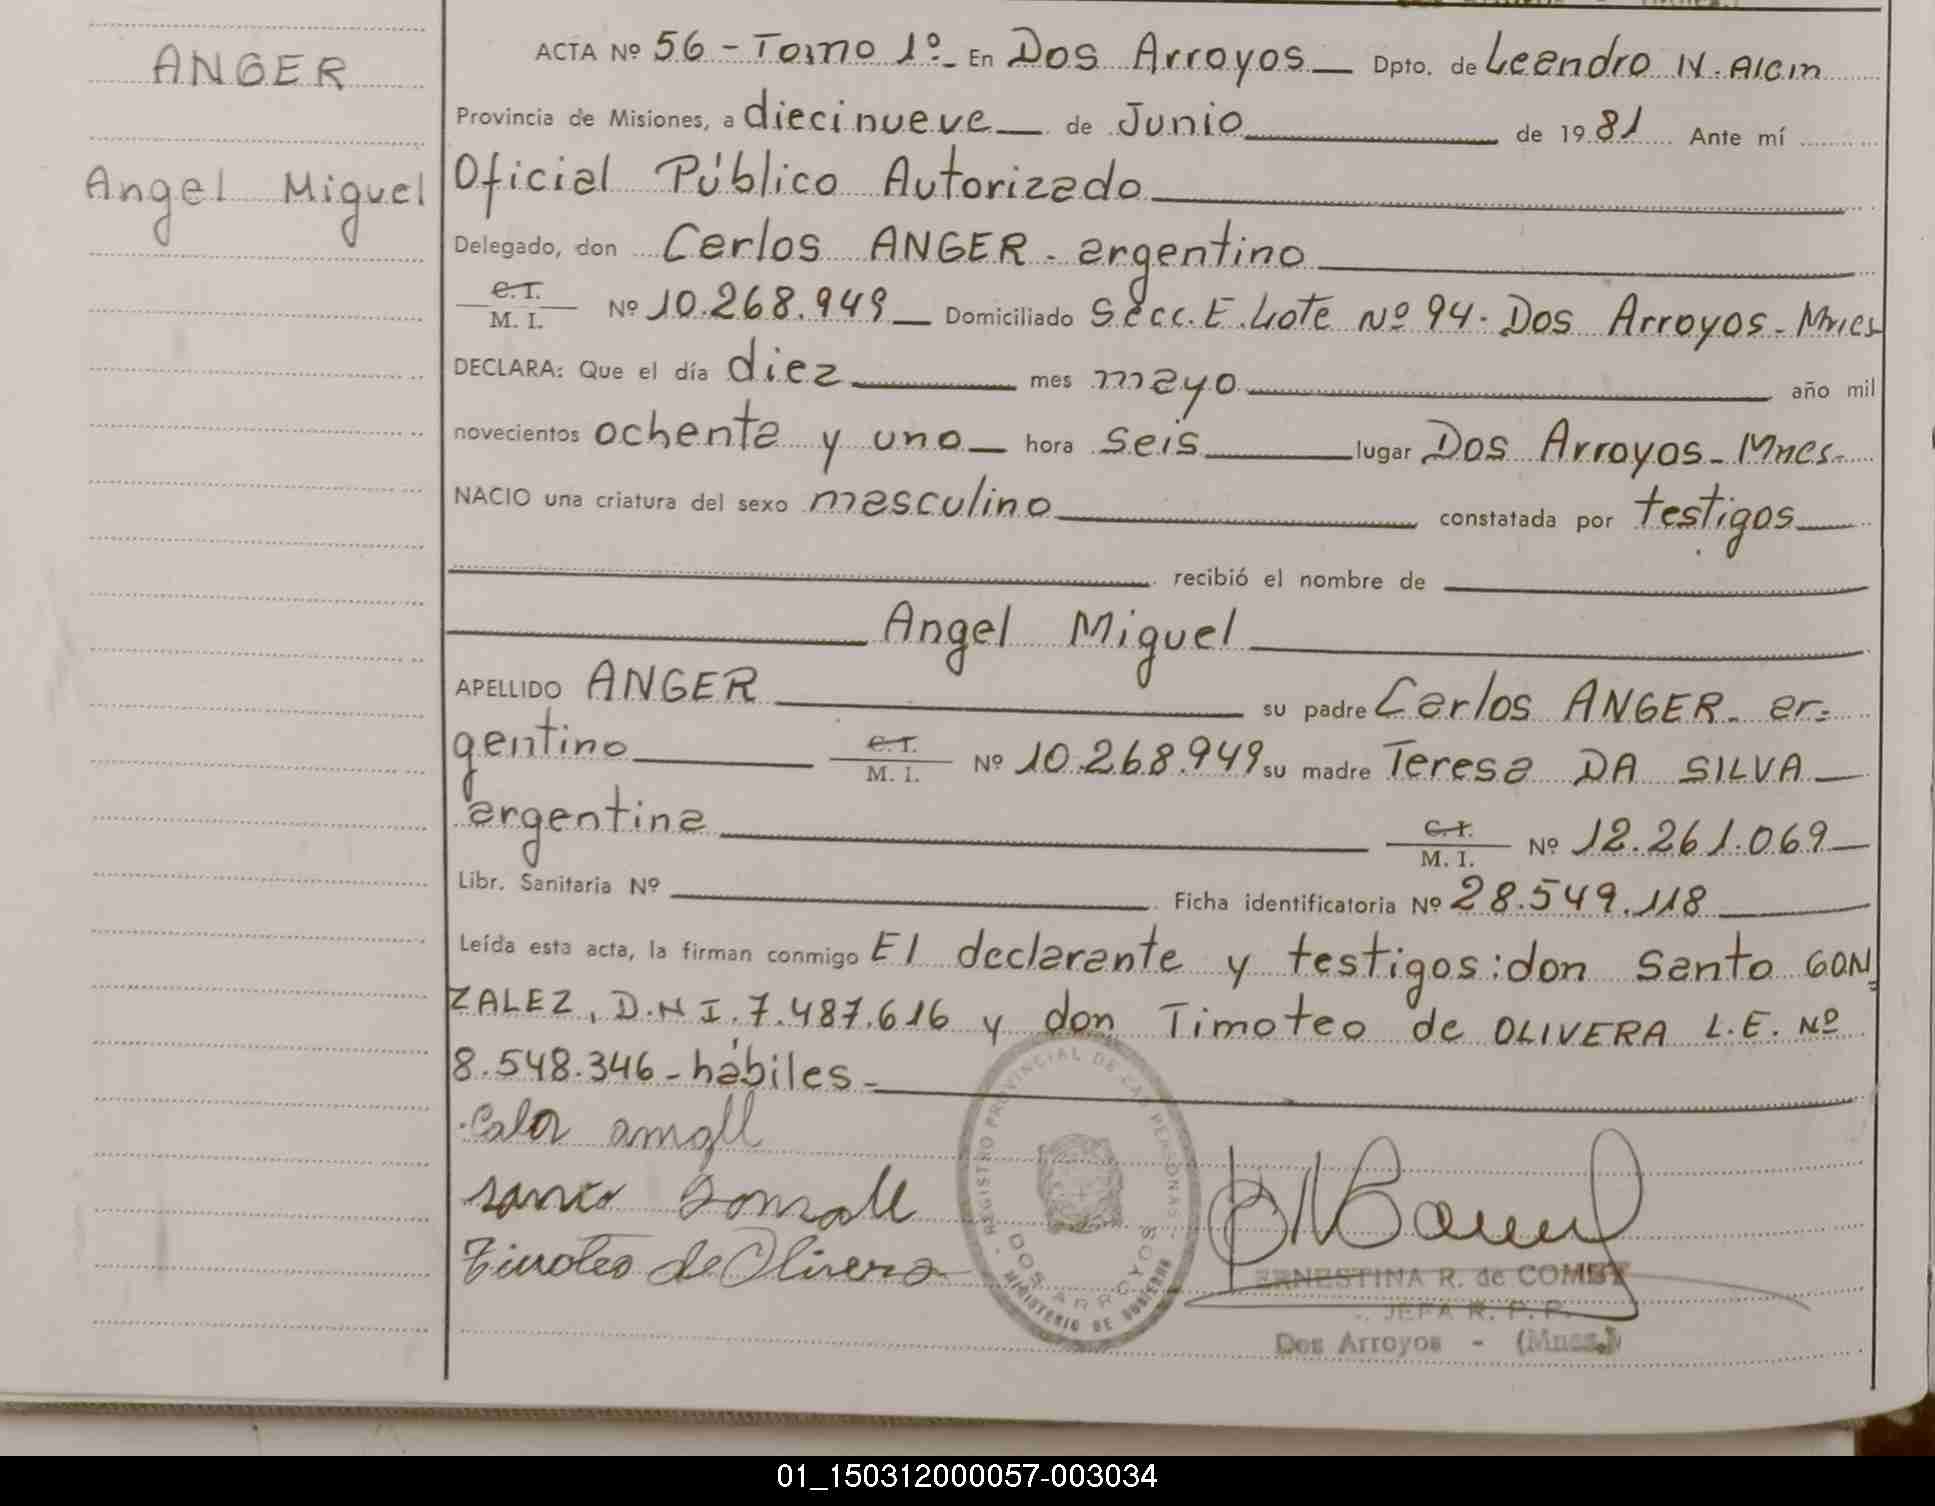 ANGER
Angel Miguel
ACTA Nº 56 - Tomo 1º - En Dos Arroyos Dpto. de Leandro N. Alem
Provincia de Misiones, a diecinueve de Junio de 1981 Ante mí
Oficial Público Autorizado
Delegado, don Carlos ANGER - argentino
C.I.
M. I. Nº 10.268.949 Domiciliado Secc. E. Lote Nº 94. Dos Arroyos - Mnes
DECLARA: Que el día diez mes mayo año mil
novecientos ochenta y uno hora seis lugar Dos Arroyos - Mnes.
NACIO una criatura del sexo masculino constatada por testigos
recibió el nombre de
Angel Miguel
APELLIDO ANGER su padre Carlos ANGER - ar-
gentino C.I. M. I. Nº 10.268.949 su madre Teresa DA SILVA
argentina C.I. M. I. Nº 12.261.069
Libr. Sanitaria Nº Ficha identificatoria Nº 28.549.118
Leída esta acta, la firman conmigo El declarante y testigos: don Santo GON
ZALEZ, D.N I. 7.487.616 y don Timoteo de OLIVERA L.E. Nº
8.548.346 - hábiles -
Timoteo de Olivera
REGISTRO PROVINCIAL DE LAS PERSONAS
DOS ARROYOS
MINISTERIO DE GOBIERNO
ERNESTINA R. de
JEFA R. P. P.
Dos Arroyos - (Mnes.)
01_150312000057-003034